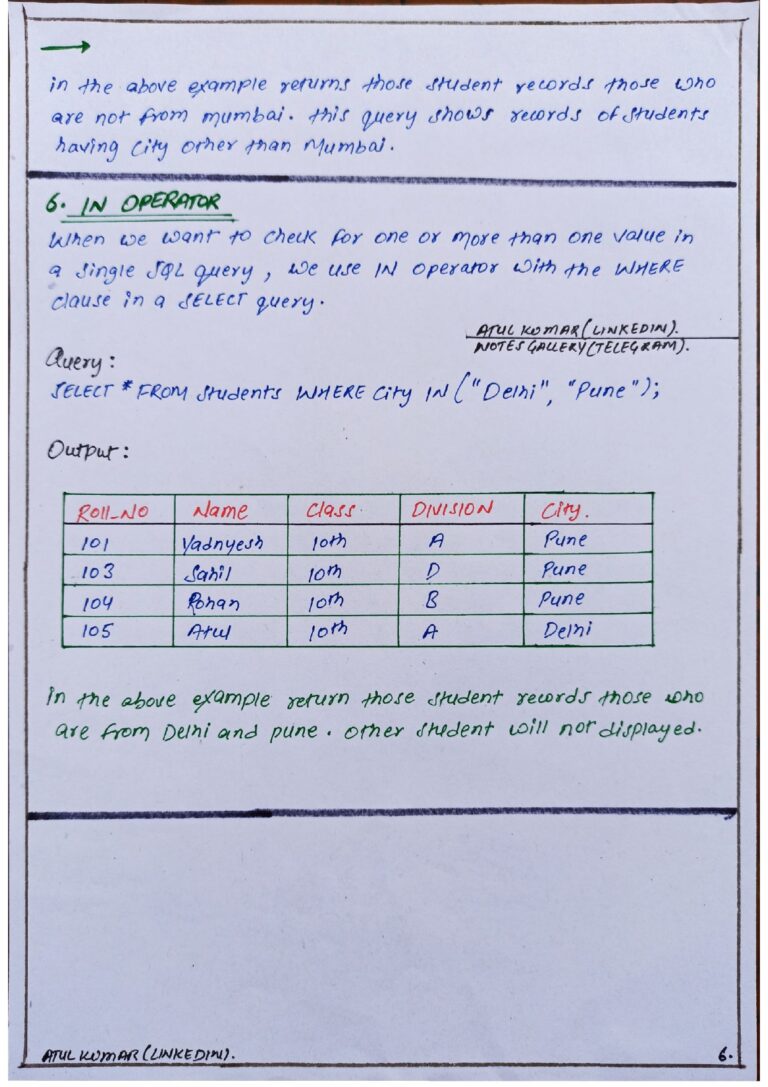 in the above example returns those student records those who
are not from mumbai. this query shows records of students
having City other than Mumbai.
6. IN OPERATOR
When we want to check for one or more than one value in
a single SQL query, we use IN operator with the WHERE
clause in a SELECT query.
ATUL KUMAR (LINKEDIN).
NOTES GALLERY (TELEGRAM).
Query:
SELECT * FROM students WHERE City IN ("Delhi", "Pune");
Output:
Roll_No Name Class. DIVISION City.
101 Yadnyesh 10th A Pune
103 Sahil 10th D Pune
104 Rohan 10th B Pune
105 Atul 10th A Delhi
In the above example return those student records those who
are from Delhi and pune. other student will not displayed.
ATUL KUMAR (LINKEDIN). 6.